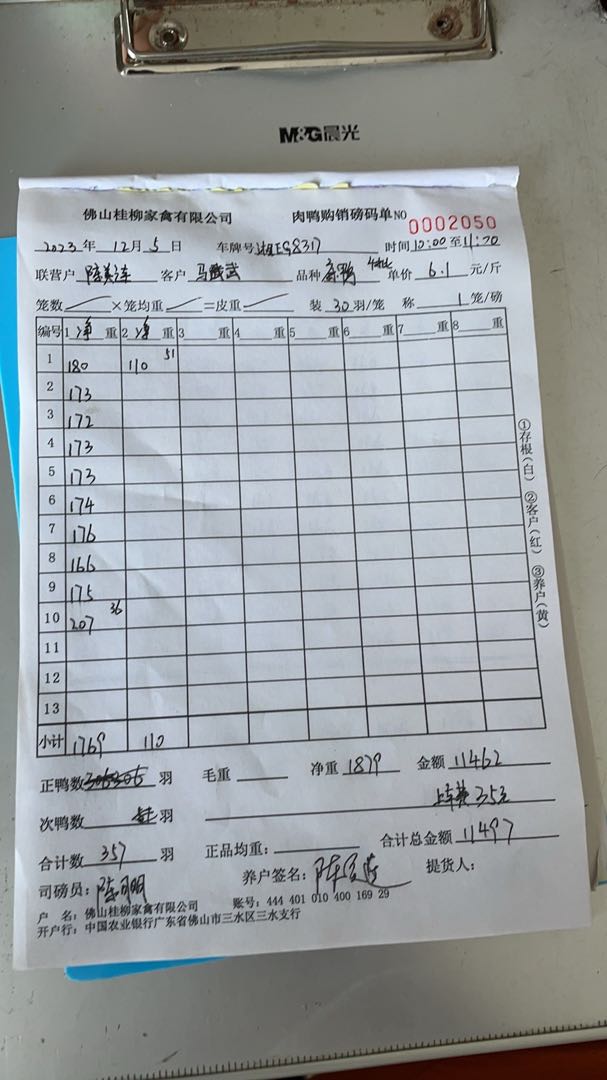 M&G晨光
佛山桂柳家禽有限公司 肉鸭购销磅码单NO 0002050
2023年 12月 5日 车牌号湘E98317 时间10:00至11:20
联营户 客户 马 品种 单价 6.1 元/斤
笼数 ×笼均重 =皮重 装 30 羽/笼 称 1 笼/磅
编号 1 净 重 2 净 重 3 重 4 重 5 重 6 重 7 重 8 重
1 180 110 51
2 173
3 172
4 173
5 173
6 174
7 176
8 166
9 175
10 207 36
11
12
13
小计 1769 110
正鸭数 羽 毛重 净重 1879 金额 11462
上车费35元
次鸭数 羽
合计数 357 羽 正品均重: 合计总金额 11497
司磅员: 养户签名: 提货人:
户 名: 佛山桂柳家禽有限公司 账号: 444 401 010 400 169 29
开户行: 中国农业银行广东省佛山市三水区三水支行
①存根(白) ②客户(红) ③养户(黄)